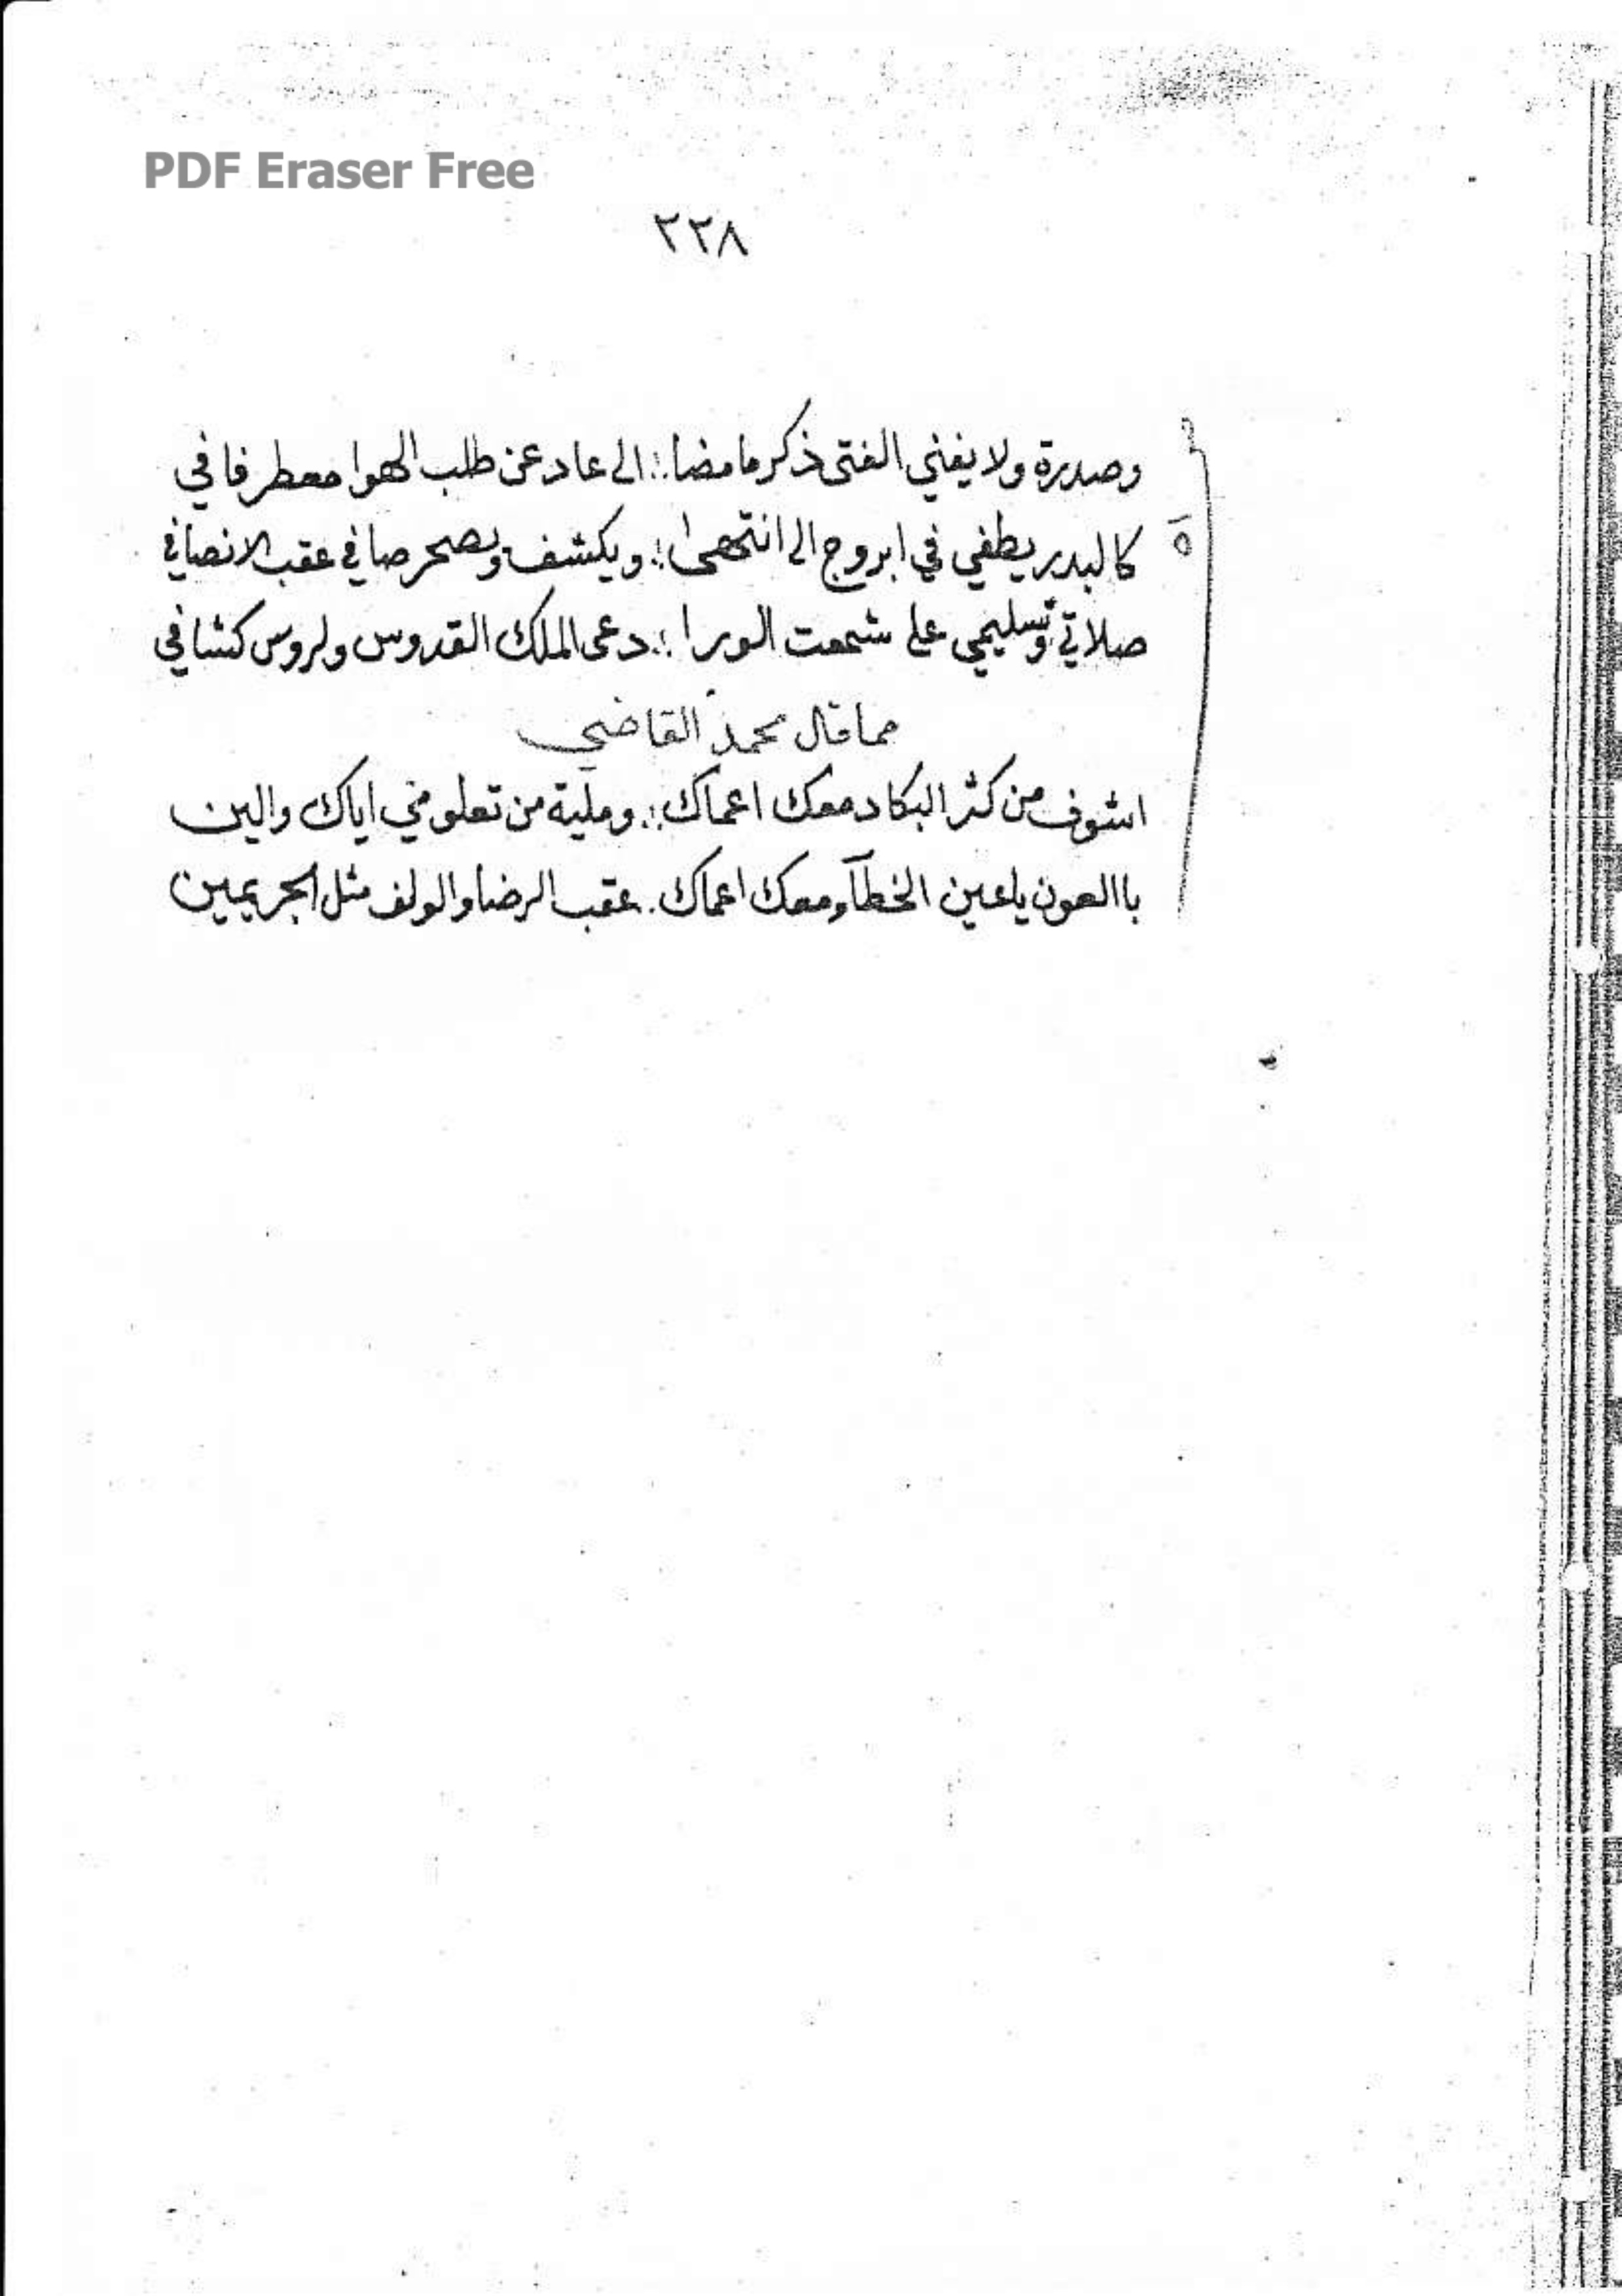 PDF Eraser Free
٢٢٨
وصدرة ولا يفني الفتى ذكر ما مضا ∴ الى عاد عن طلب الهوا معطر فافي
كالبدر يطفي في ابروج الى انتهى ∴ ويكشف ويصحر صافي عقب الانصافي
صلاتي وتسليمي على شمعت الورا ∴ دعى الملك القدوس ولروس كشافي
مما قال محمد القاضي
اشوف من كثر البكا دمعك اعماك ∴ ومنية من تعلو مني اياك والين
باالعون ياعين الخطآ ومعك اعماك ∴ عقب الرضا والولف مثل الجريمين